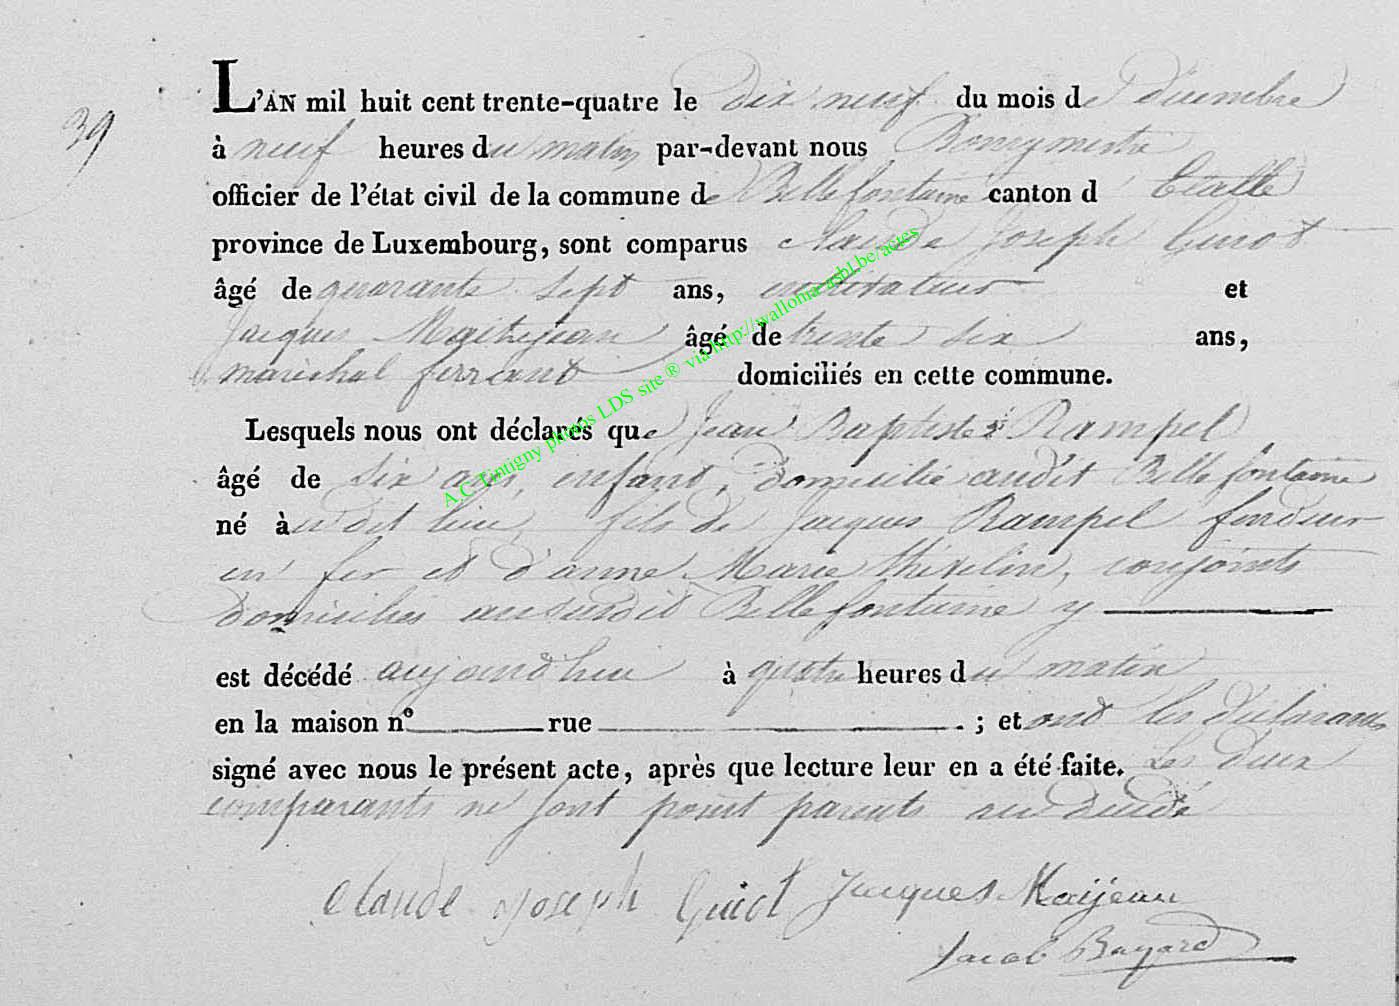 39
L'AN mil huit cent trente-quatre le dix neuf du mois de décembre
à neuf heures du matin par-devant nous Bourgmestre
officier de l'état civil de la commune de Bellefontaine canton d' Etalle
province de Luxembourg, sont comparus Claude Joseph Guiot
âgé de quarante sept ans, cultivateur et
Jacques Maithejean âgé de trente six ans,
maréchal ferrant domiciliés en cette commune.
Lesquels nous ont déclarés que Jean Baptiste Rampel
âgé de six ans, enfant, domicilié audit Bellefontaine
né audit lieu, fils de Jacques Rampel fondeur
en fer et d'anne Marie thirelin, conjoints
domiciliés ausurdit Bellefontaine y
est décédé aujourd'hui à quatre heures du matin
en la maison n° rue ; et ont les déclarans
signé avec nous le présent acte, après que lecture leur en a été faite. Les deux
comparants ne sont point parents au décédé
Claude Joseph Guiot Jacques Maijean
Jacob Bayard
A.C. Tintigny photos LDS site ® via http://wallonia-asbl.be/actes